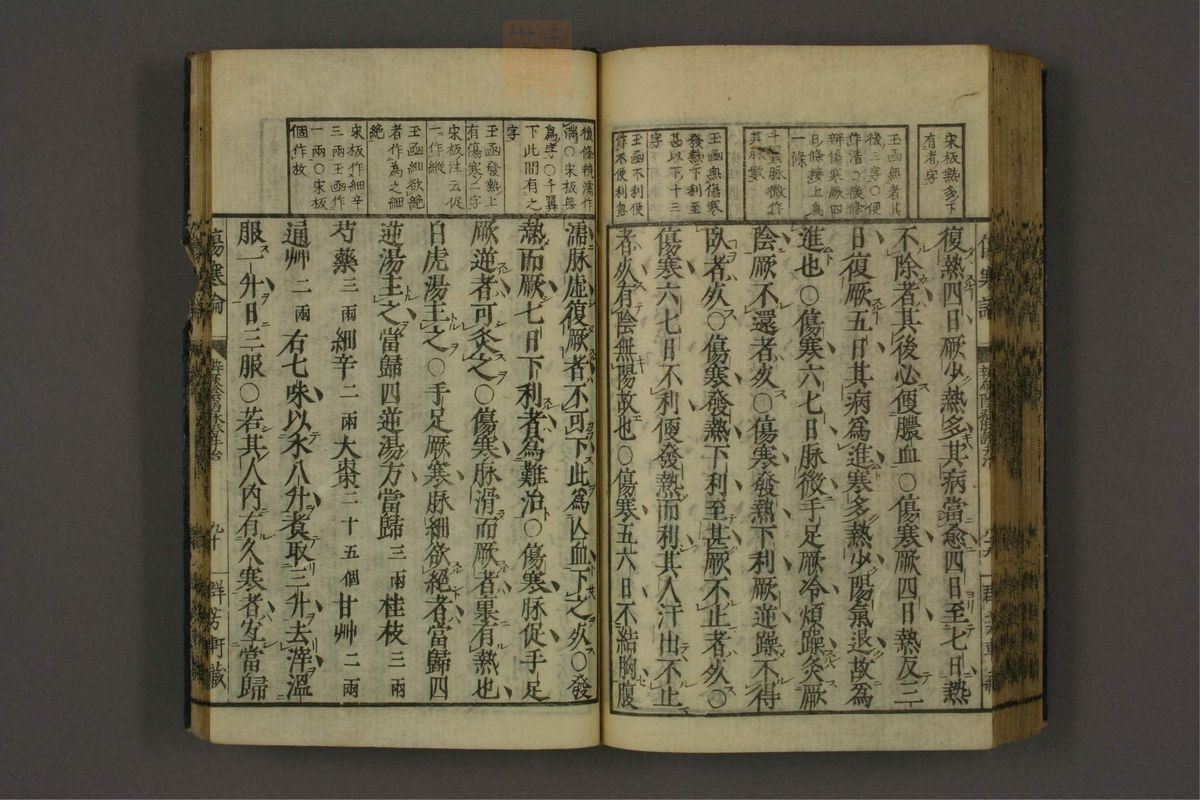 宋板熱多下
有者字
玉函無者其
後三字○便
作清○後條
辨傷寒厥四
日條接上為
一條
千翼脉微作
其脉數
玉函無傷寒
發熱下利至
甚以下十三
字
玉函不利便
作不便利忽
復熱四日厥少熱多其病當愈四日至七日熱
不除者其後必便膿血○傷寒厥四日熱反三
日復厥五日其病為進寒多熱少陽氣退故為
進也○傷寒六七日脉微手足厥冷煩躁灸厥
陰厥不還者死○傷寒發熱下利厥逆躁不得
臥者死○傷寒發熱下利至甚厥不止者死○
傷寒六七日不利便發熱而利其人汗出不止
者死有陰無陽故也○傷寒五六日不結胸腹
後條辨濡作
為字○千翼
下此間有之
字
玉函發熱上
有傷寒二字
宋板注云促
一作縱
玉函細欲絶
者作為之細
絶
宋板作細辛
三兩玉函作
一兩○宋板
個作枚
濡脉虚復厥者不可下此為亾血下之死○發
熱而厥七日下利者為難治○傷寒脉促手足
厥逆者可灸之○傷寒脉滑而厥者裏有熱也
白虎湯主之○手足厥寒脉細欲絶者當歸四
逆湯主之當歸四逆湯方當歸三兩桂枝三兩
芍藥三兩細辛二兩大棗二十五個甘艸二兩
通艸二兩右七味以水八升煑取三升去滓溫
服一升日三服○若其人內有久寒者宜當歸
傷寒論
九十
群芳軒藏